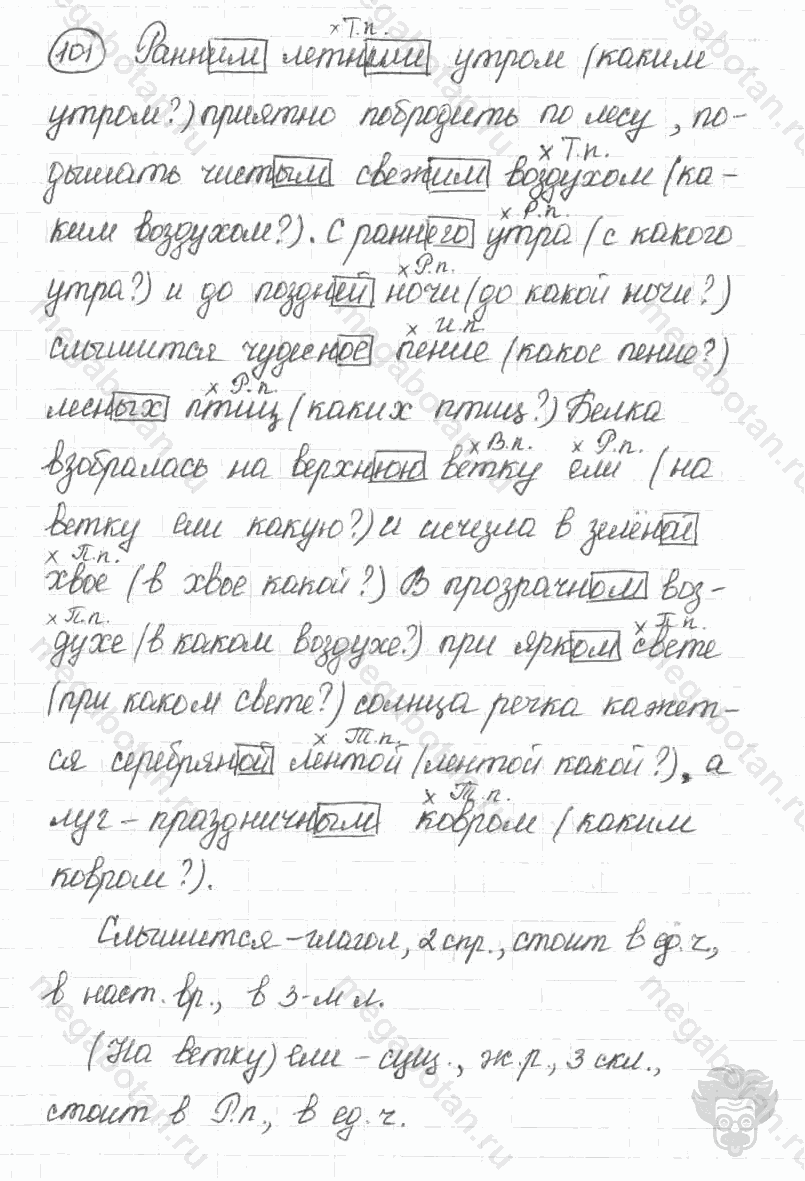 х Т.п.
101 Ранним летним утром (каким
утром?) приятно побродить по лесу, по-
х Т.п.
дышать чистым свежим воздухом (ка-
х Р.п.
ким воздухом?). С раннего утра (с какого
х Р.п.
утра?) и до поздней ночи (до какой ночи?)
х И.п.
слышится чудесное пение (какое пение?)
х Р.п.
лесных птиц (каких птиц?) Белка
х В.п. х Р.п.
взобралась на верхнюю ветку ели (на
ветку ели какую?) и исчезла в зелёной
х П.п.
хвое (в хвое какой?) В прозрачном воз-
х П.п. х П.п.
духе (в каком воздухе?) при ярком свете
(при каком свете?) солнца речка кажет-
х Т.п.
ся серебряной лентой (лентой какой?), а
х Т.п.
луг - праздничным ковром (каким
ковром?).
Слышится - глагол, 2 спр., стоит в ед.ч.,
в наст. вр., в 3-м л.
(На ветку) ели - сущ., ж.р., 3 скл.,
стоит в Р.п., в ед.ч.
megabotan.ru